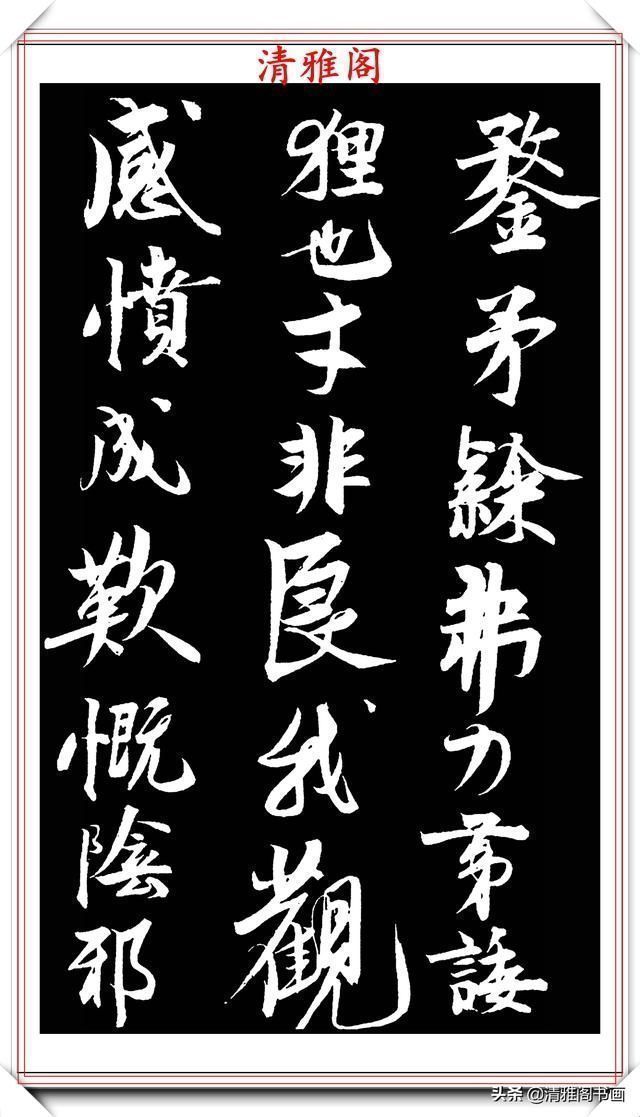 清雅阁
鍪矛弗力苐諉
狸也才非良我觀
感憤成歎慨陰邪
头条 @清雅阁书画